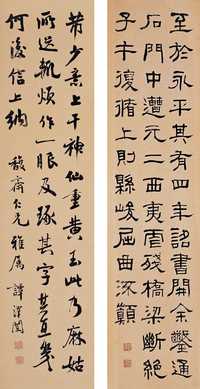 至於永平其有四年詔書開余鑿通
石門中遭元二西夷虐殘橋梁斷絕
子午復循上則縣峻屈曲流顛
芾少意上干神仙重黃玉此乃麻姑
所送輒煩作一眼及琢其字其直幾
何後信上納 馥齋仁兄雅屬 譚澤闓